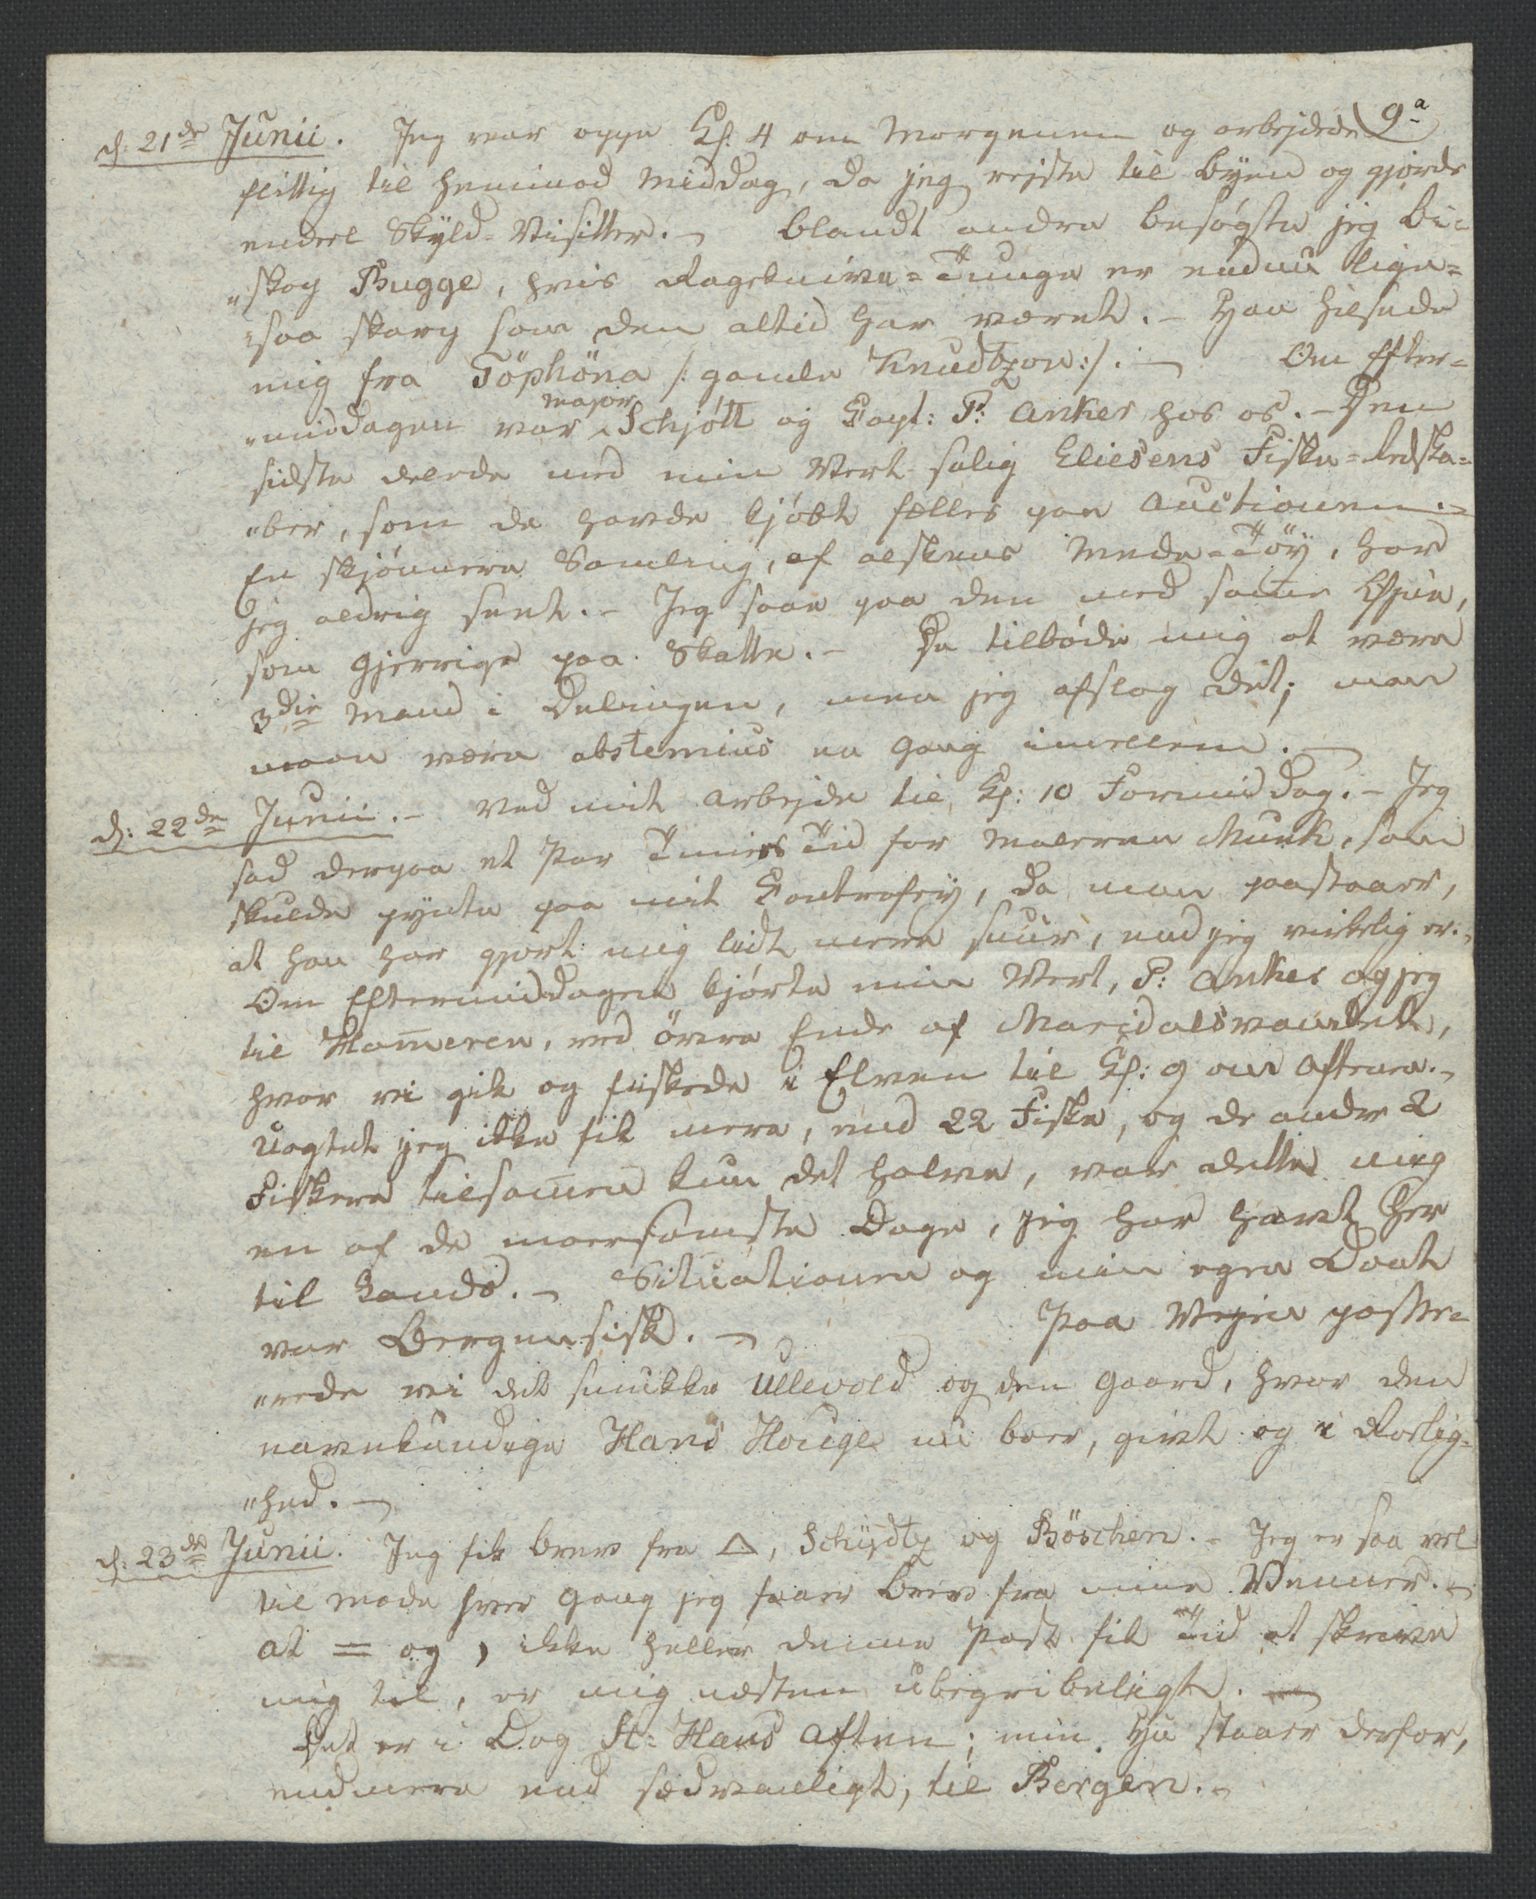 9a
d: 21de Junii. Jeg var oppe Kl. 4 om Morgenen og arbejdede
flittig til henimod Middag, da jeg rejste til Byen og gjorde
endeel Skyld-Visitter. – Blandt andre besøgte jeg Bi-
"skop Bugge, hvis Ragekniva-Tunge er endnu lige-
"saa skarp som den altid har været. – Han hilsede
mig fra Töphöna /: gamle Knudtzon:/. – Om Efter-
"middagen var major Schjøtt og Capt: P: Anker hos os. – Den
sidste deelede med min Vert salig Eliesens Fiske-Redska-
"ber, som de havde kjøbt fælles paa Auctionen. –
En skjønnere Samling, af alskens Mede-Töÿ, har
jeg aldrig seet. – Jeg saae paa den med samme Øjne,
som gjerrige paa Skatte. – De tilbøde mig at være
3die Mand i Delingen, men jeg afslog det; man
maae være abstemius en Gang imellem. –
d: 22de Junii. – Ved mit Arbejde til Kl: 10 Formiddag. – Jeg
sad derpaa et Par Timers Tid for Maleren Munk, som
skulde pynte paa mit Contrafeÿ, da man paastaaer,
at han har gjort mig lidt mere suur, end jeg virkelig er. –
Om Eftermiddagen kjørte min Vert, P: Anker og jeg
til Ham̄eren, ved övre Ende af Maridalsvandet,
hvor vi gik og fiskede i Elven til Kl: 9 om Aftenen. –
Uagtet jeg ikke fik mere, end 22 Fiske, og de andre 2
Fiskere tilsam̄en kun det halve, var dette mig
en af de moersomste Dage, jeg har havt her
til Lands. – Situationen og min egen Dont
var Bergensisk. – Paa Vejen passe-
"rede vi det smukke Ullevold og den Gaard, hvor den
navnkundige Hans Houge nu boer, givt og i Roelig-
"hed. –
d: 23de Junii. Jeg fik Brev fra △, Schydtz og Böschen. – Jeg er saa vel
til mode hver Gang jeg faaer Brev fra mine Venner. –
At = og ) ikke heller denne Post fik Tid at skrive
mig til, er mig næsten ubegribeligt. –
Det er i Dag St: Hans Aften; min Hu staaer derfor,
endmere end sædvanligt, til Bergen. –